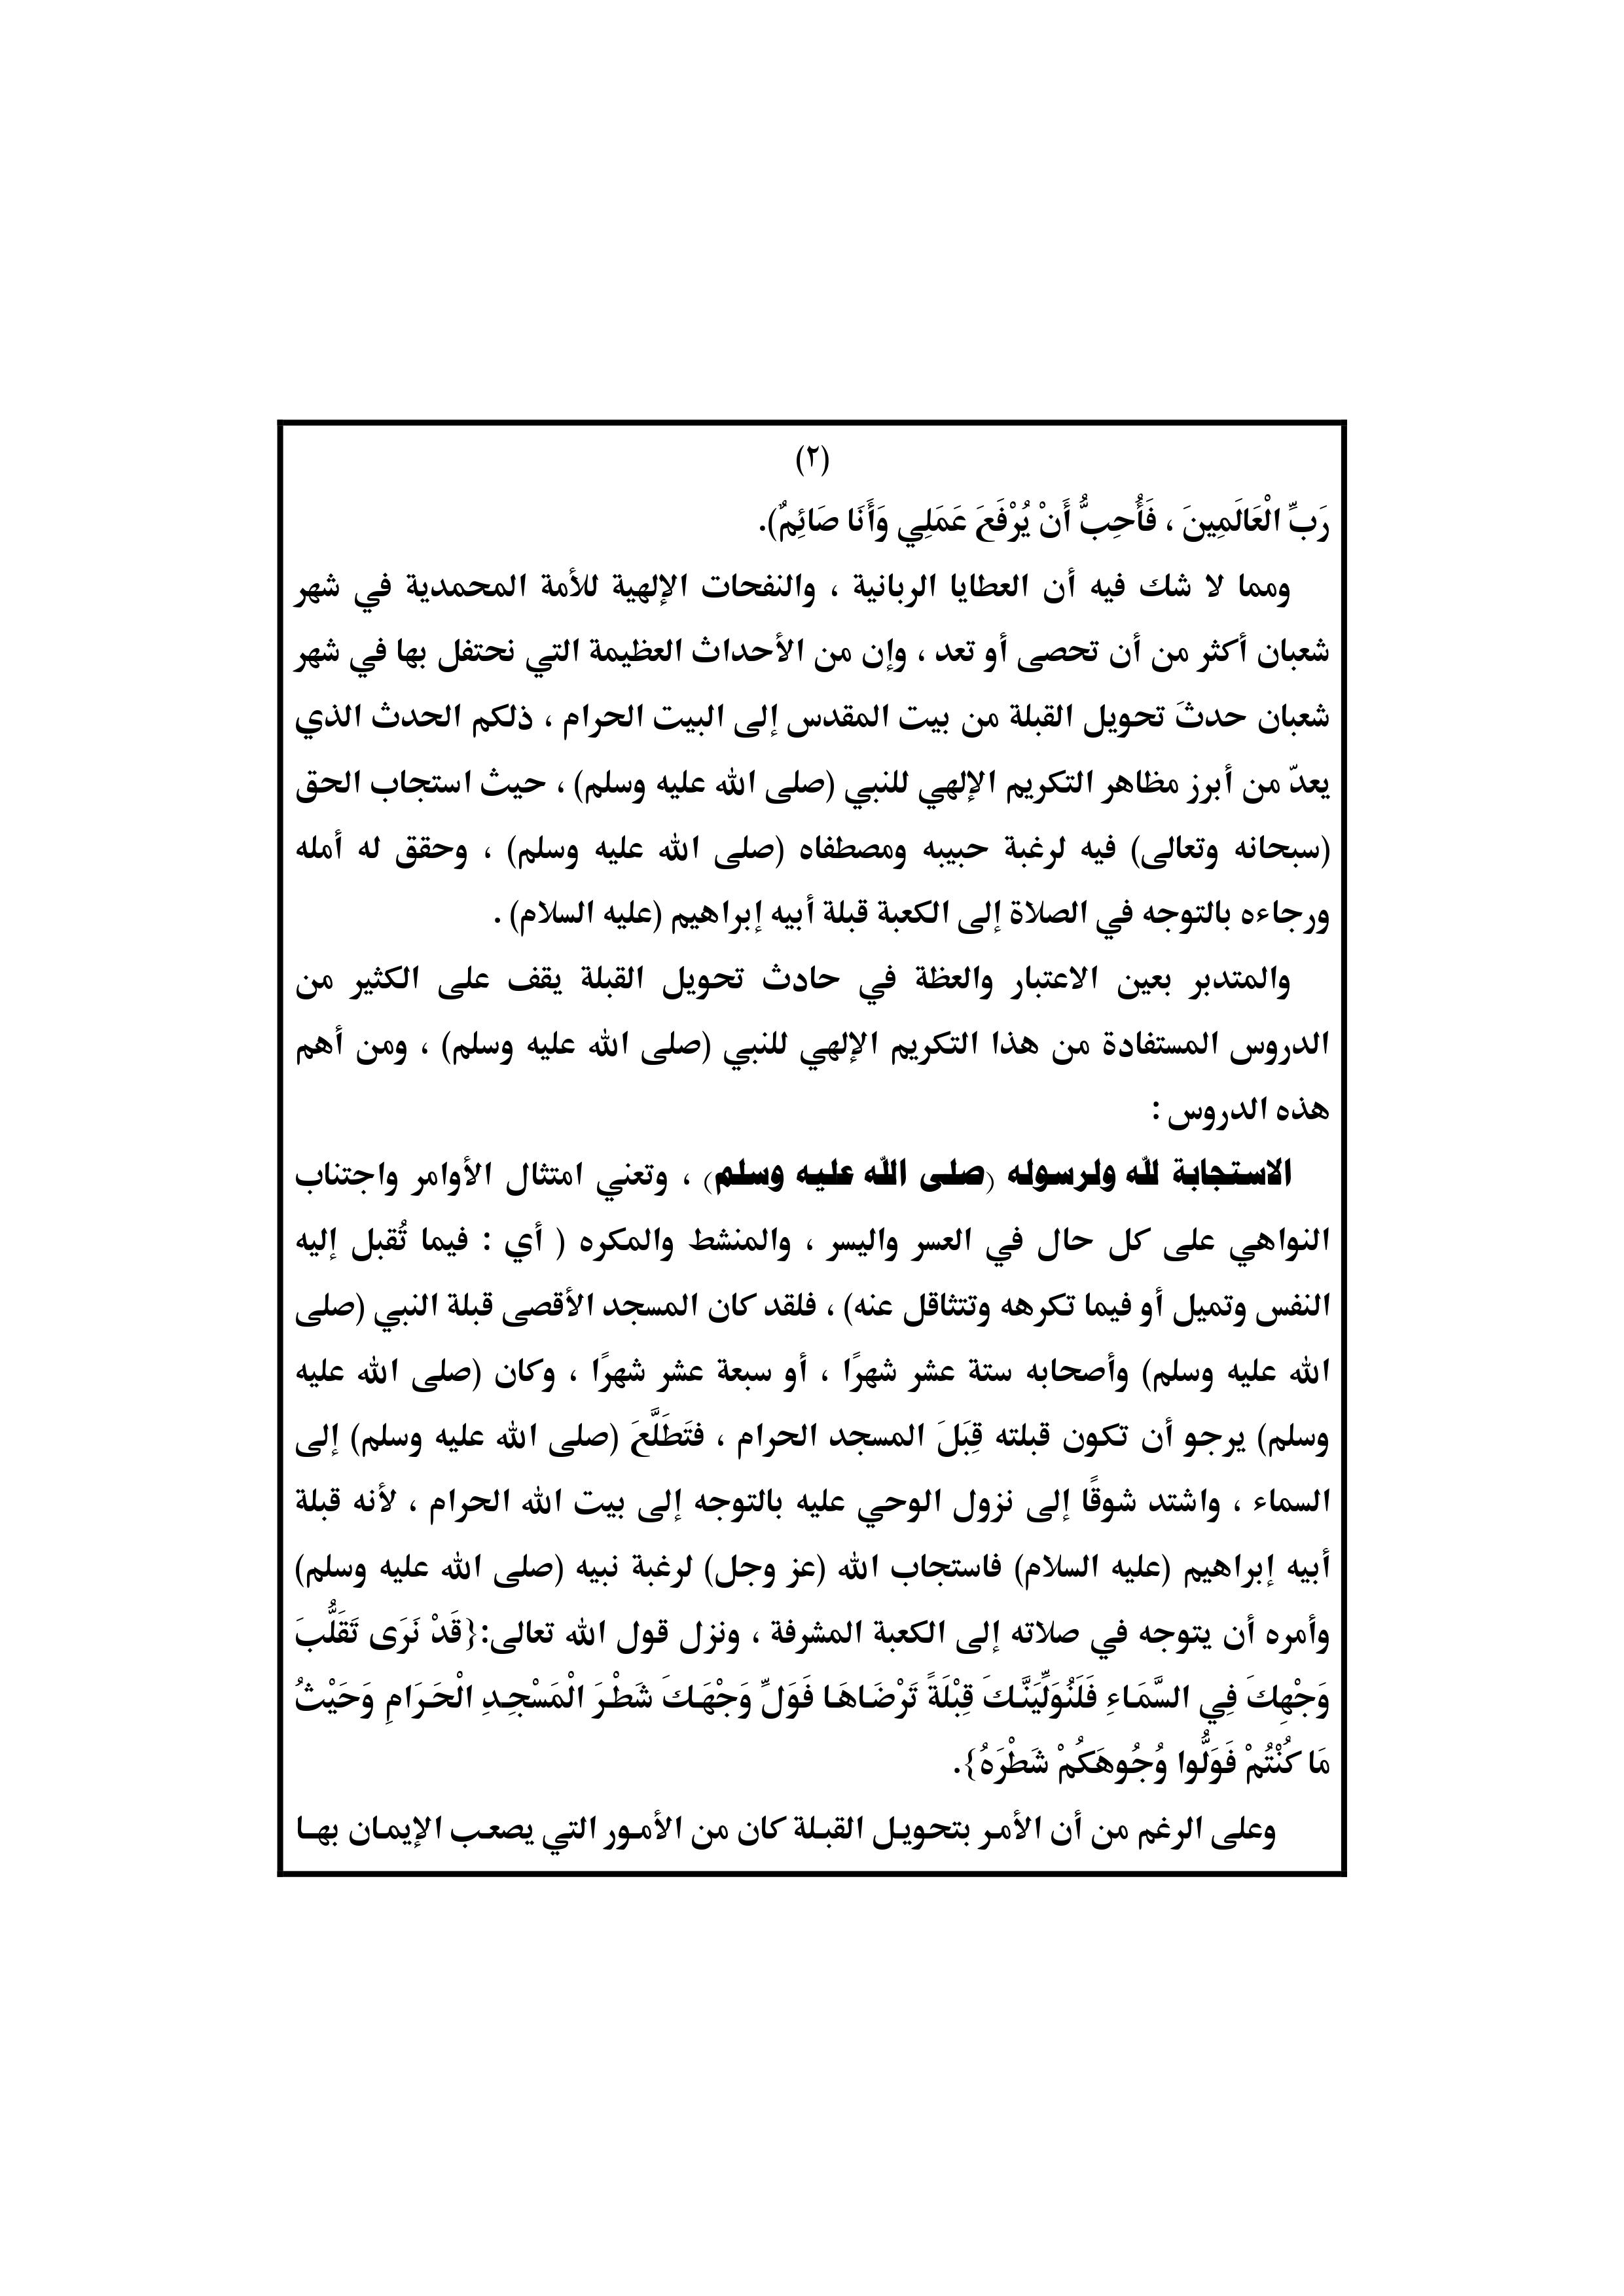 (٢)
رَبِّ الْعَالَمِينَ ، فَأُحِبُّ أَنْ يُرْفَعَ عَمَلِي وَأَنَا صَائِمٌ).
ومما لا شك فيه أن العطايا الربانية ، والنفحات الإلهية للأمة المحمدية في شهر
شعبان أكثر من أن تحصى أو تعد ، وإن من الأحداث العظيمة التي نحتفل بها في شهر
شعبان حدثَ تحويل القبلة من بيت المقدس إلى البيت الحرام ، ذلكم الحدث الذي
يعدّ من أبرز مظاهر التكريم الإلهي للنبي (صلى الله عليه وسلم) ، حيث استجاب الحق
(سبحانه وتعالى) فيه لرغبة حبيبه ومصطفاه (صلى الله عليه وسلم) ، وحقق له أمله
ورجاءه بالتوجه في الصلاة إلى الكعبة قبلة أبيه إبراهيم (عليه السلام) .
والمتدبر بعين الاعتبار والعظة في حادث تحويل القبلة يقف على الكثير من
الدروس المستفادة من هذا التكريم الإلهي للنبي (صلى الله عليه وسلم) ، ومن أهم
هذه الدروس :
الاستجابة لله ولرسوله (صلى الله عليه وسلم) ، وتعني امتثال الأوامر واجتناب
النواهي على كل حال في العسر واليسر ، والمنشط والمكره ( أي : فيما تُقبل إليه
النفس وتميل أو فيما تكرهه وتتثاقل عنه) ، فلقد كان المسجد الأقصى قبلة النبي (صلى
الله عليه وسلم) وأصحابه ستة عشر شهرًا ، أو سبعة عشر شهرًا ، وكان (صلى الله عليه
وسلم) يرجو أن تكون قبلته قِبَلَ المسجد الحرام ، فتَطَلَّعَ (صلى الله عليه وسلم) إلى
السماء ، واشتد شوقًا إلى نزول الوحي عليه بالتوجه إلى بيت الله الحرام ، لأنه قبلة
أبيه إبراهيم (عليه السلام) فاستجاب الله (عز وجل) لرغبة نبيه (صلى الله عليه وسلم)
وأمره أن يتوجه في صلاته إلى الكعبة المشرفة ، ونزل قول الله تعالى:{قَدْ نَرَى تَقَلُّبَ
وَجْهِكَ فِي السَّمَاءِ فَلَنُوَلِّيَنَّكَ قِبْلَةً تَرْضَاهَا فَوَلِّ وَجْهَكَ شَطْرَ الْمَسْجِدِ الْحَرَامِ وَحَيْثُ
مَا كُنْتُمْ فَوَلُّوا وُجُوهَكُمْ شَطْرَهُ}.
وعلى الرغم من أن الأمر بتحويل القبلة كان من الأمور التي يصعب الإيمان بها